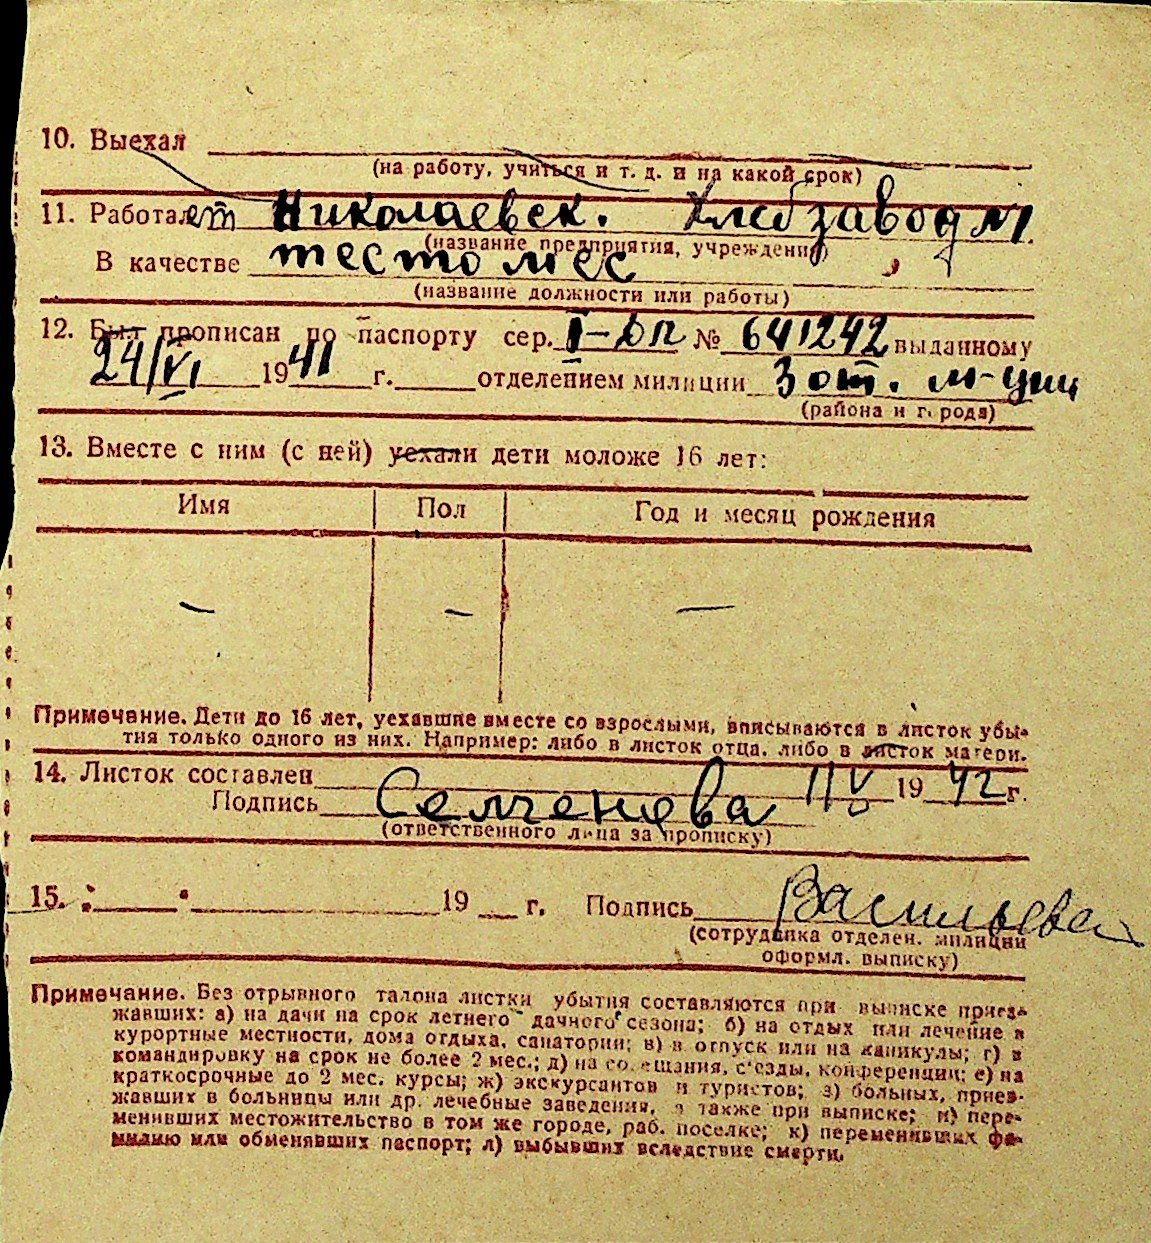 10. Выехал
(на работу, учиться и т. д. и на какой срок)
11. Работает Николаевск. Хлебзавод №1
(название предприятия, учреждения)
В качестве тестомес
(название должности или работы)
12. Был прописан по паспорту сер. I-ДП № 641242 выданному
24/VI 1941 г. отделением милиции 3 от. м-ции
(района и города)
13. Вместе с ним (с ней) уехали дети моложе 16 лет:
Имя Пол Год и месяц рождения
— — —
Примечание. Дети до 16 лет, уехавшие вместе со взрослыми, вписываются в листок убы-
тия только одного из них. Например: либо в листок отца, либо в листок матери.
14. Листок составлен 11/V 1942 г.
Подпись Селченева
(ответственного лица за прописку)
15. 19 г. Подпись Васильева
(сотрудника отделен. милиции
оформл. выписку)
Примечание. Без отрывного талона листки убытия составляются при выписке приез-
жавших: а) на дачи на срок летнего дачного сезона; б) на отдых или лечение в
курортные местности, дома отдыха, санатории; в) в отпуск или на каникулы; г) в
командировку на срок не более 2 мес.; д) на совещания, съезды, конференции; е) на
краткосрочные до 2 мес. курсы; ж) экскурсантов и туристов; з) больных, приез-
жавших в больницы или др. лечебные заведения, а также при выписке; и) пере-
менивших местожительство в том же городе, раб. поселке; к) переменивших фа-
милию или обменявших паспорт; л) выбывших вследствие смерти.